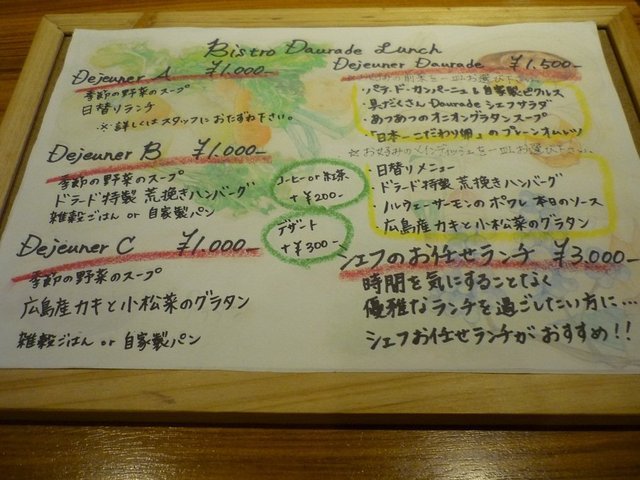 Bistro Daurade Lunch
Dejeuner A ¥1,000-
季節の野菜のスープ
日替りランチ
※詳しくはスタッフにおたずね下さい。
Dejeuner B ¥1,000-
季節の野菜のスープ
ドラード特製 荒挽きハンバーグ
雑穀ごはん or 自家製パン
Dejeuner C ¥1,000-
季節の野菜のスープ
広島産カキと小松菜のグラタン
雑穀ごはん or 自家製パン
コーヒー or 紅茶
+¥200-
デザート
+¥300-
Dejeuner Daurade ¥1,500-
・パテ・ド・カンパーニュ&自家製ピクルス
・具だくさん Daurade シェフサラダ
・あつあつのオニオングラタンスープ
・「日本一こだわり卵」のプレーンオムレツ
☆お好みのメインディッシュを一皿お選び下さい。
・日替りメニュー
・ドラード特製 荒挽きハンバーグ
・ノルウェーサーモンのポワレ 本日のソース
・広島産カキと小松菜のグラタン
シェフのお任せランチ ¥3,000-
時間を気にすることなく
優雅なランチを過ごしたい方に…
シェフお任せランチがおすすめ!!